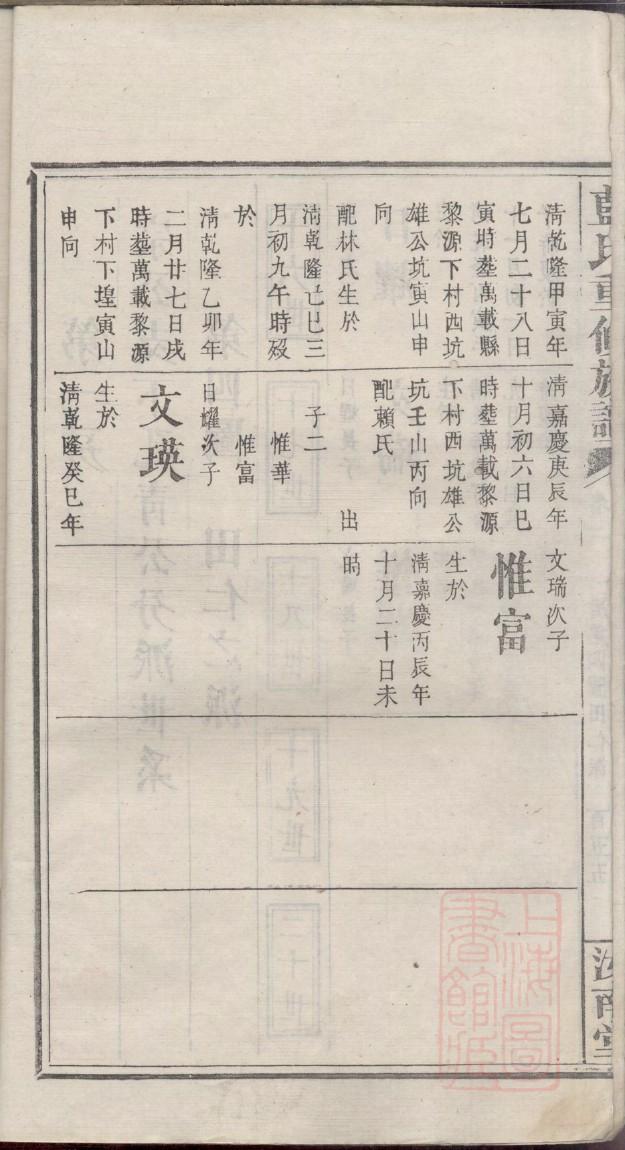 藍氏重修族譜
汝南堂
清乾隆甲寅年
七月二十八日
寅時塟萬載縣
黎源下村西坑
雄公坑寅山申
向
配林氏生於
清乾隆己巳三
月初九午時歿
於
清乾隆乙卯年
二月廿七日戌
時塟萬載黎源
下村下埕寅山
申向
清嘉慶庚辰年
十月初六日巳
時塟萬載黎源
下村西坑雄公
坑壬山丙向
配賴氏
出
子二
惟華
惟富
日耀次子
文瑛
生於
清乾隆癸巳年
文瑞次子
惟富
生於
清嘉慶丙辰年
十月二十日未
時
上海圖
書館藏